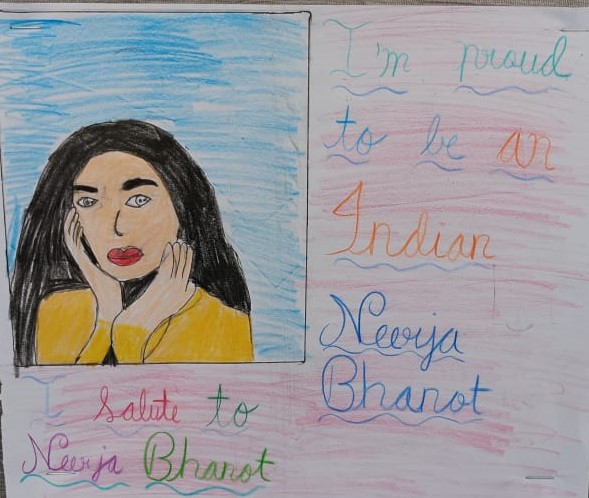 I'm proud
to be an
Indian
Neerja
Bhanot
I salute to
Neerja Bhanot